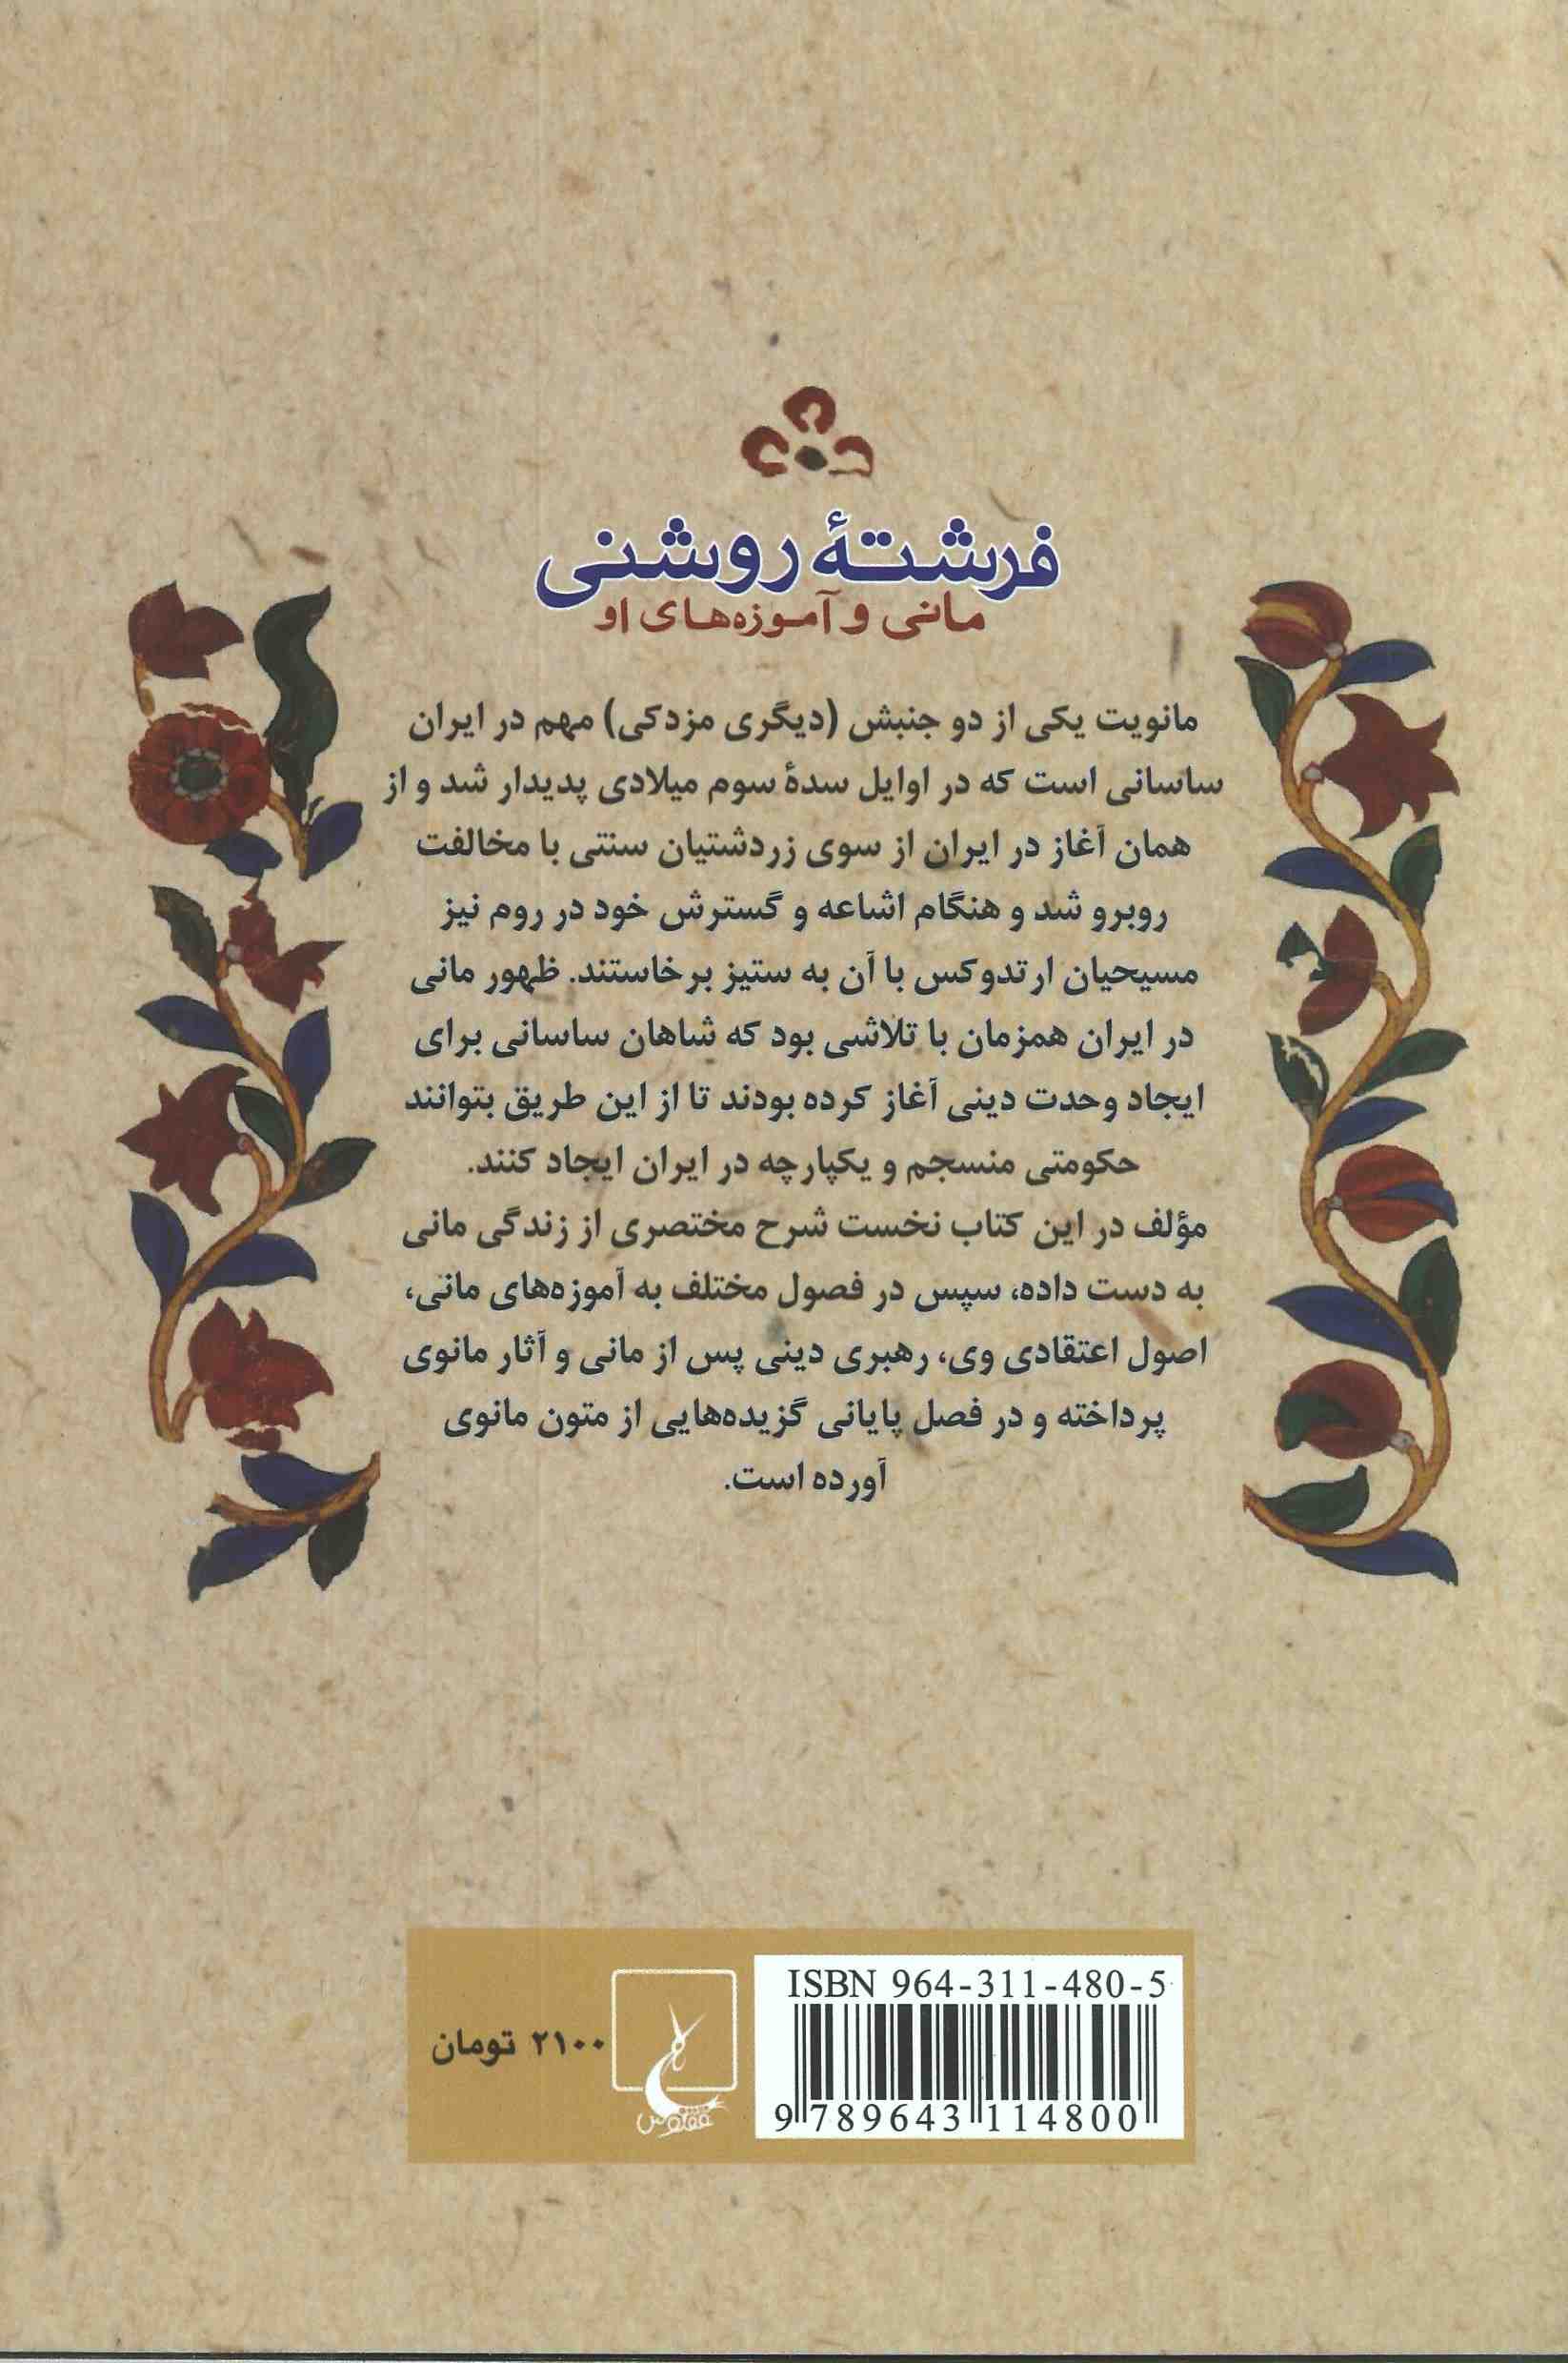 فرشتهٔ روشنی
مانی و آموزه‌های او
مانویت یکی از دو جنبش (دیگری مزدکی) مهم در ایران
ساسانی است که در اوایل سدهٔ سوم میلادی پدیدار شد و از
همان آغاز در ایران از سوی زردشتیان سنتی با مخالفت
روبرو شد و هنگام اشاعه و گسترش خود در روم نیز
مسیحیان ارتدوکس با آن به ستیز برخاستند. ظهور مانی
در ایران همزمان با تلاشی بود که شاهان ساسانی برای
ایجاد وحدت دینی آغاز کرده بودند تا از این طریق بتوانند
حکومتی منسجم و یکپارچه در ایران ایجاد کنند.
مؤلف در این کتاب نخست شرح مختصری از زندگی مانی
به دست داده، سپس در فصول مختلف به آموزه‌های مانی،
اصول اعتقادی وی، رهبری دینی پس از مانی و آثار مانوی
پرداخته و در فصل پایانی گزیده‌هایی از متون مانوی
آورده است.
ISBN 964-311-480-5
9 789643 114800
ققنوس
۲۱۰۰ تومان